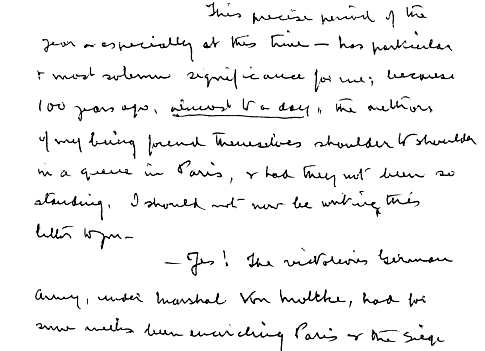 This precise period of the
year & especially at this time – has particular
& most solemn significance for me; because
100 years ago, almost to a day, the authors
of my being found themselves shoulder to shoulder
in a queue in Paris, & had they not been so
standing, I should not now be writing this
letter to you –
– Yes! The victorious German
army, under Marshal Von Moltke, had for
some weeks been encircling Paris & the siege